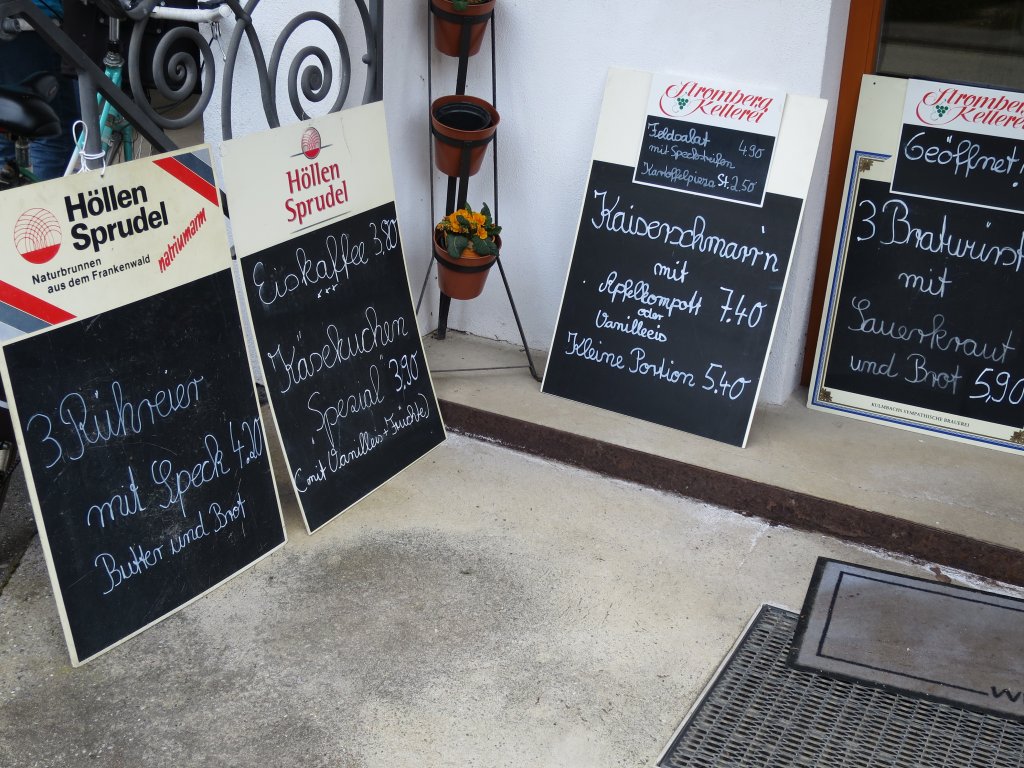 Höllen
Sprudel
Naturbrunnen
aus dem Frankenwald
natriumarm
3 Rühreier
mit Speck 4.20
Butter und Brot
Höllen
Sprudel
Eiskaffee 3,80
xxx
Käsekuchen
"Spezial" 3,90
(mit Vanilleis + Früchte)
Stromberg
Kellerei
Feldsalat 4.90
mit Speckstreifen
Kartoffelpizza St. 2.50
Kaiserschmarrn
mit
Apfelkompott 7.40
oder
Vanilleeis
Kleine Portion 5.40
Stromberg
Kellerei
Geöffnet!
3 Bratwürst
mit
Sauerkraut
und Brot 5,90
KULMBACHS SYMPATHISCHE BRAUEREI